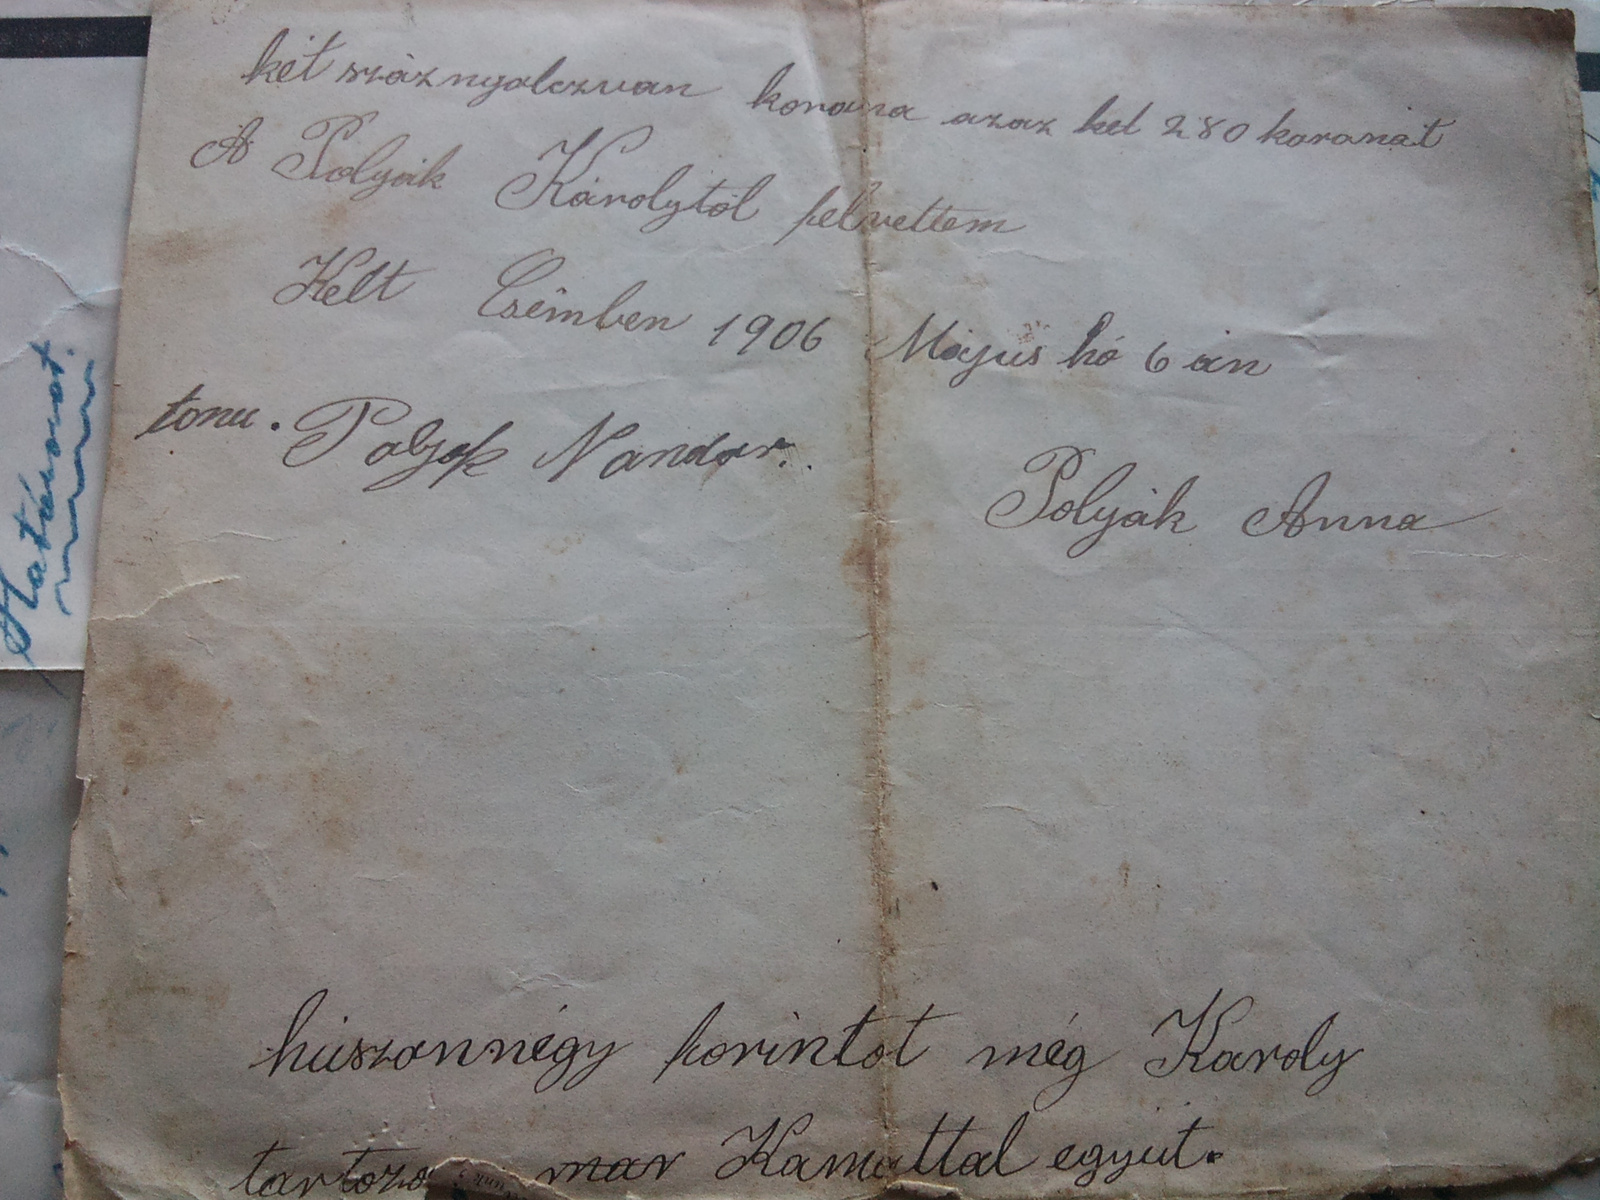 két száznyolczvan korona azaz ket 280 koronát
A Polyák Károlytól felvettem
Kelt Csémben 1906 Május hó 6 án
tanu. Polyák Nandor.
Polyák Anna
húszannégy forintot még Karoly
tartozo mar Kamattal együt.
Határozat.